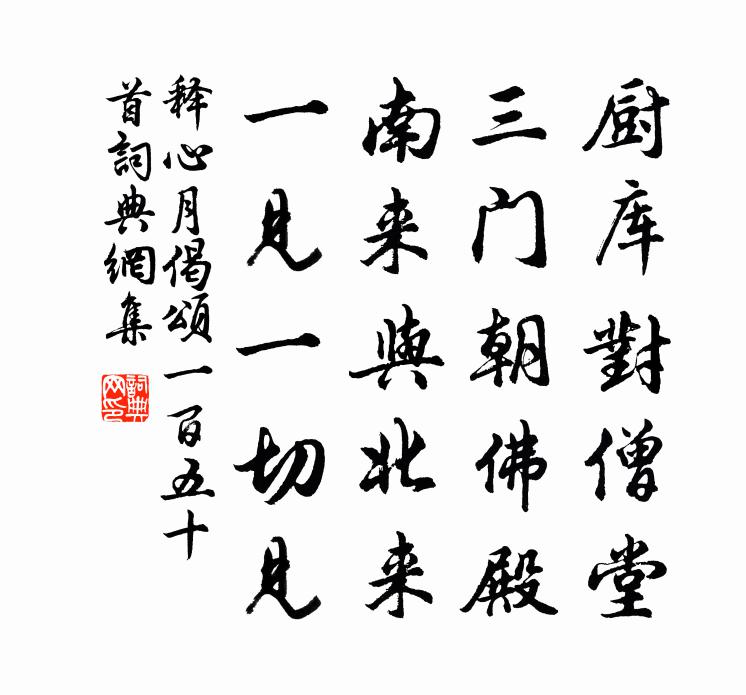 厨库對僧堂
三门朝佛殿
南来與北来
一見一切見
释心月偈頌一百五十
首詞典網集
詞典网印